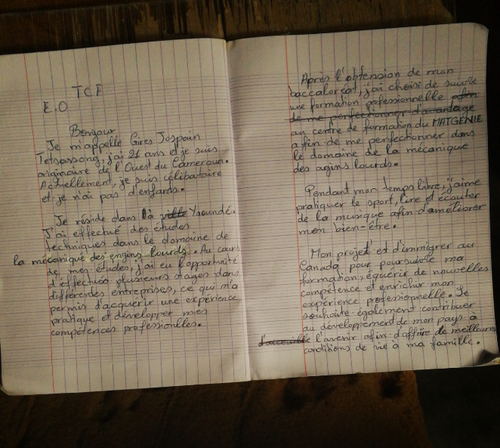 TCF
E.O
Bonjour
Je m'appelle Gires Jospain
Tetsassong, j'ai 21 ans et je suis
originaire de l'Ouest du Cameroun.
Actuellement, je suis célibataire
et je n'ai pas d'enfants.
Je réside dans la ville Yaoundé.
J'ai effectué des études
techniques dans le domaine de
la mécanique des engins lourds. Au cours
de mes études, j'ai eu l'opportunité
d'effectuer plusieurs stages dans
différentes entreprises, ce qui m'a
permis d'acquérir une expérience
pratique et développer mes
compétences professionnelles.
Après l'obtension de mon
baccaloréat, j'ai choisi de suivre
une formation professionnelle afin
de me perfectionner davantage
au centre de formation du MATGENIE
afin de me perfectionner dans
le domaine de la mécanique
des agins lourds.
Pendant mon temps libre, j'aime
pratiquer le sport, lire et écouter
de la musique afin d'améliorer
mon bien-être.
Mon projet est d'immigrer au
Canada pour poursuivre ma
formation, aquérir de nouvelles
compétence et enrichir mon
expérience professionnelle. Je
souhaite également contribuer
au développement de mon pays à
l'avenir afin d'offrir de meilleures
conditions de vie à ma famille.